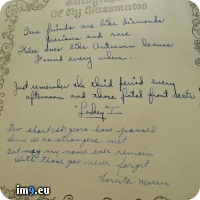 Autographs
Of My Classmates
True friends are like diamonds
precious and rare
False ones like Autumn leaves
Found every where.
Just remember the third period every
afternoon and those fatal front seats
"Lashey"
Two short (ish) years have passed
Since we as strangers met
But may my name ever remain
With those you never forget
Loreta Morris
im9.eu